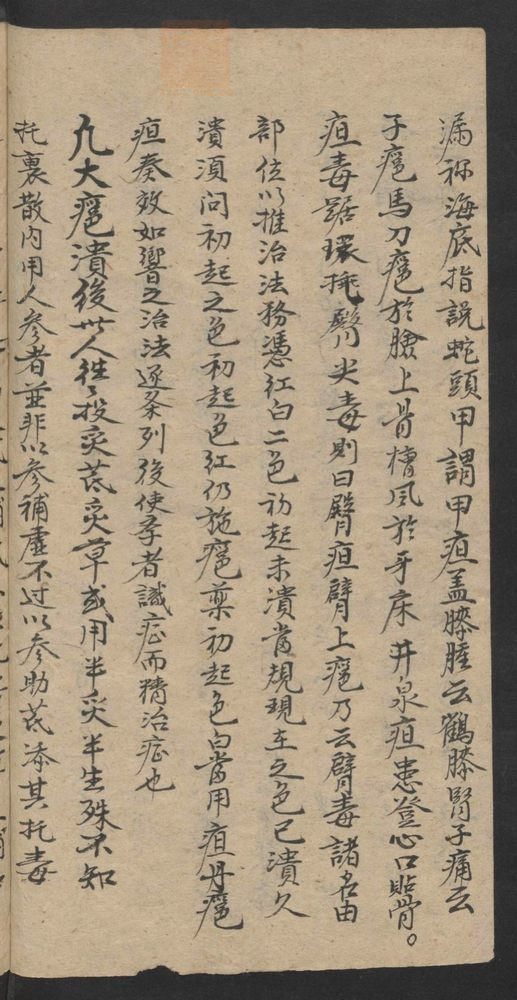 漏称海底指說蛇頭甲謂甲疽盖膝腫云鶴膝腎子痛云
子癰馬刀癰於脇上骨槽風於牙床井泉疽患登心口貼骨。
疽毒踞環挑臀尖毒則曰臀疽臂上癰乃云臂毒諸名由
部位以推治法務憑紅白二色初起未潰當規現在之色已潰久
潰須問初起之色初起色紅仍施癰藥初起色白當用疽丹癰
疽奏效如響之治法逐条列後使孝者識症而精治症也
凢大癰潰後世人往〻投炙芪炙草或用半炙半生殊不知
托裏散內用人參者並非以參補虛不过以參助芪添其托毒